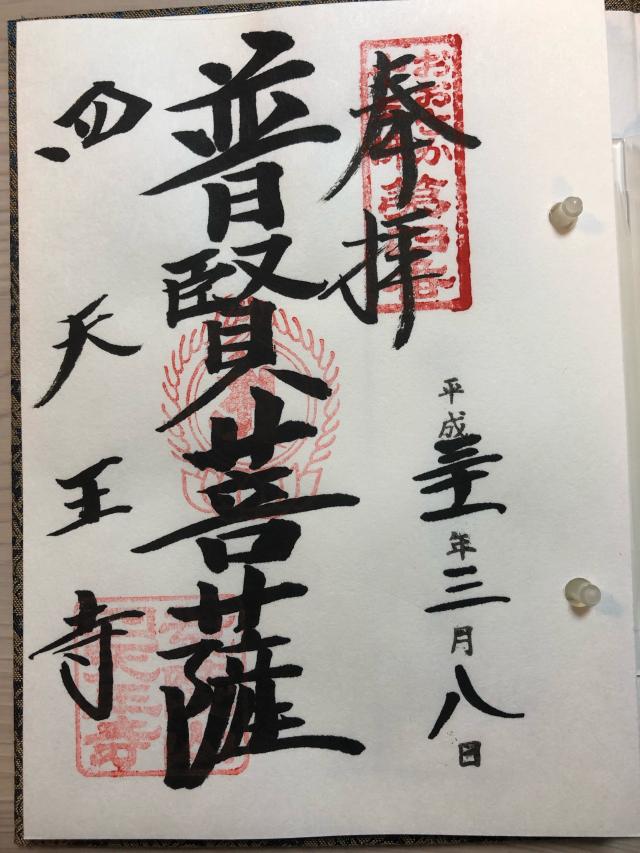 奉拝
おおさか
第四番
平成三十一年三月八日
普賢菩薩
四天王寺